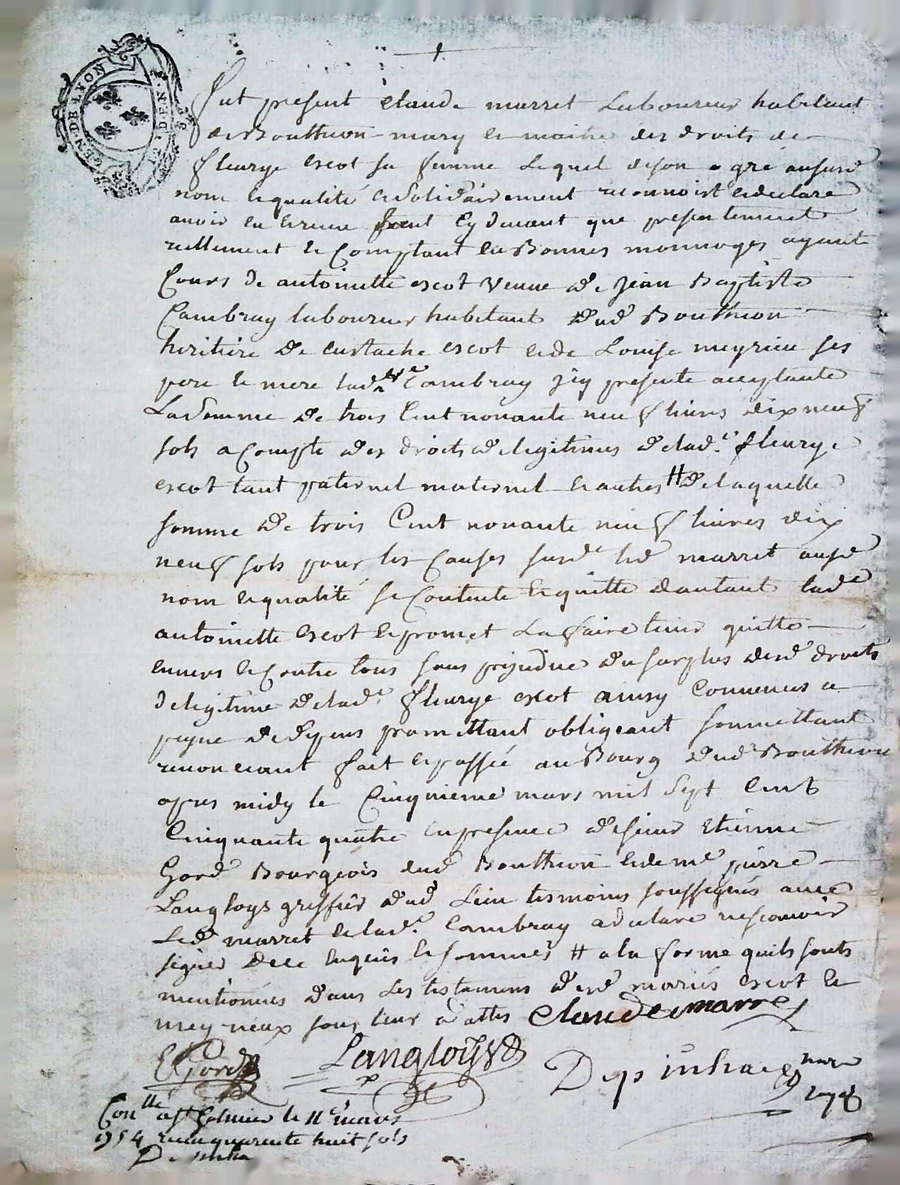 GEN. DE LYON
Fut present Claude marret Laboureur habitant
de Boutheon mary et maitre des droits de
fleurye escot sa femme Lequel de son gré
nom et qualité et solidairement reconnoist et declare
avoir eu et receu cy devant que presentement
reellement et Comptant en Bonnes monnoyes ayant
Cours de antoinette escot veuve de jean Baptiste
Cambray laboureur habitant dud Boutheon
heritiere de eustache escot et de Louise meyrieu ses
pere et mere lade Cambray icy presente acceptante
La Somme de trois Cent novante neuf livres dix neuf
sols a Compte des droits de legitimes de lade fleurye
escot tant paternel maternel et autres # De laquelle
somme de trois Cent novante neuf livres dix
neuf sols pour les Causes sur de led marret aud
nom et qualité se Contente et quitte d'autant lade
antoinette escot et promet La faire tenir quitte
envers et Contre tous sans prejudice du surplus desd droits
de legitime de lade fleurye escot ainsy Convenus a
peyne de depens promettant obligeant soumettant
renonceant fait et passé au Bourg dud Bouthéon
apres midy le Cinquieme mars mil sept Cent
Cinquante quatre en presence de sieur Etienne
Gord Bourgeois dud Bouthéon et de me pierre
Langloys greffier dud Lieu tesmoins soussignés avec
Led marret et lade Cambray a declaré ne scavoir
signer de ce enquis et sommés # a la forme quils sonts
mentionnés dans les testamens desd mariés escot et
meyrieux sous leur dattes Claude marret
E Gord Langloys
Con.lle a st Galmier le 11e mars
1754 recu quarente huit sols